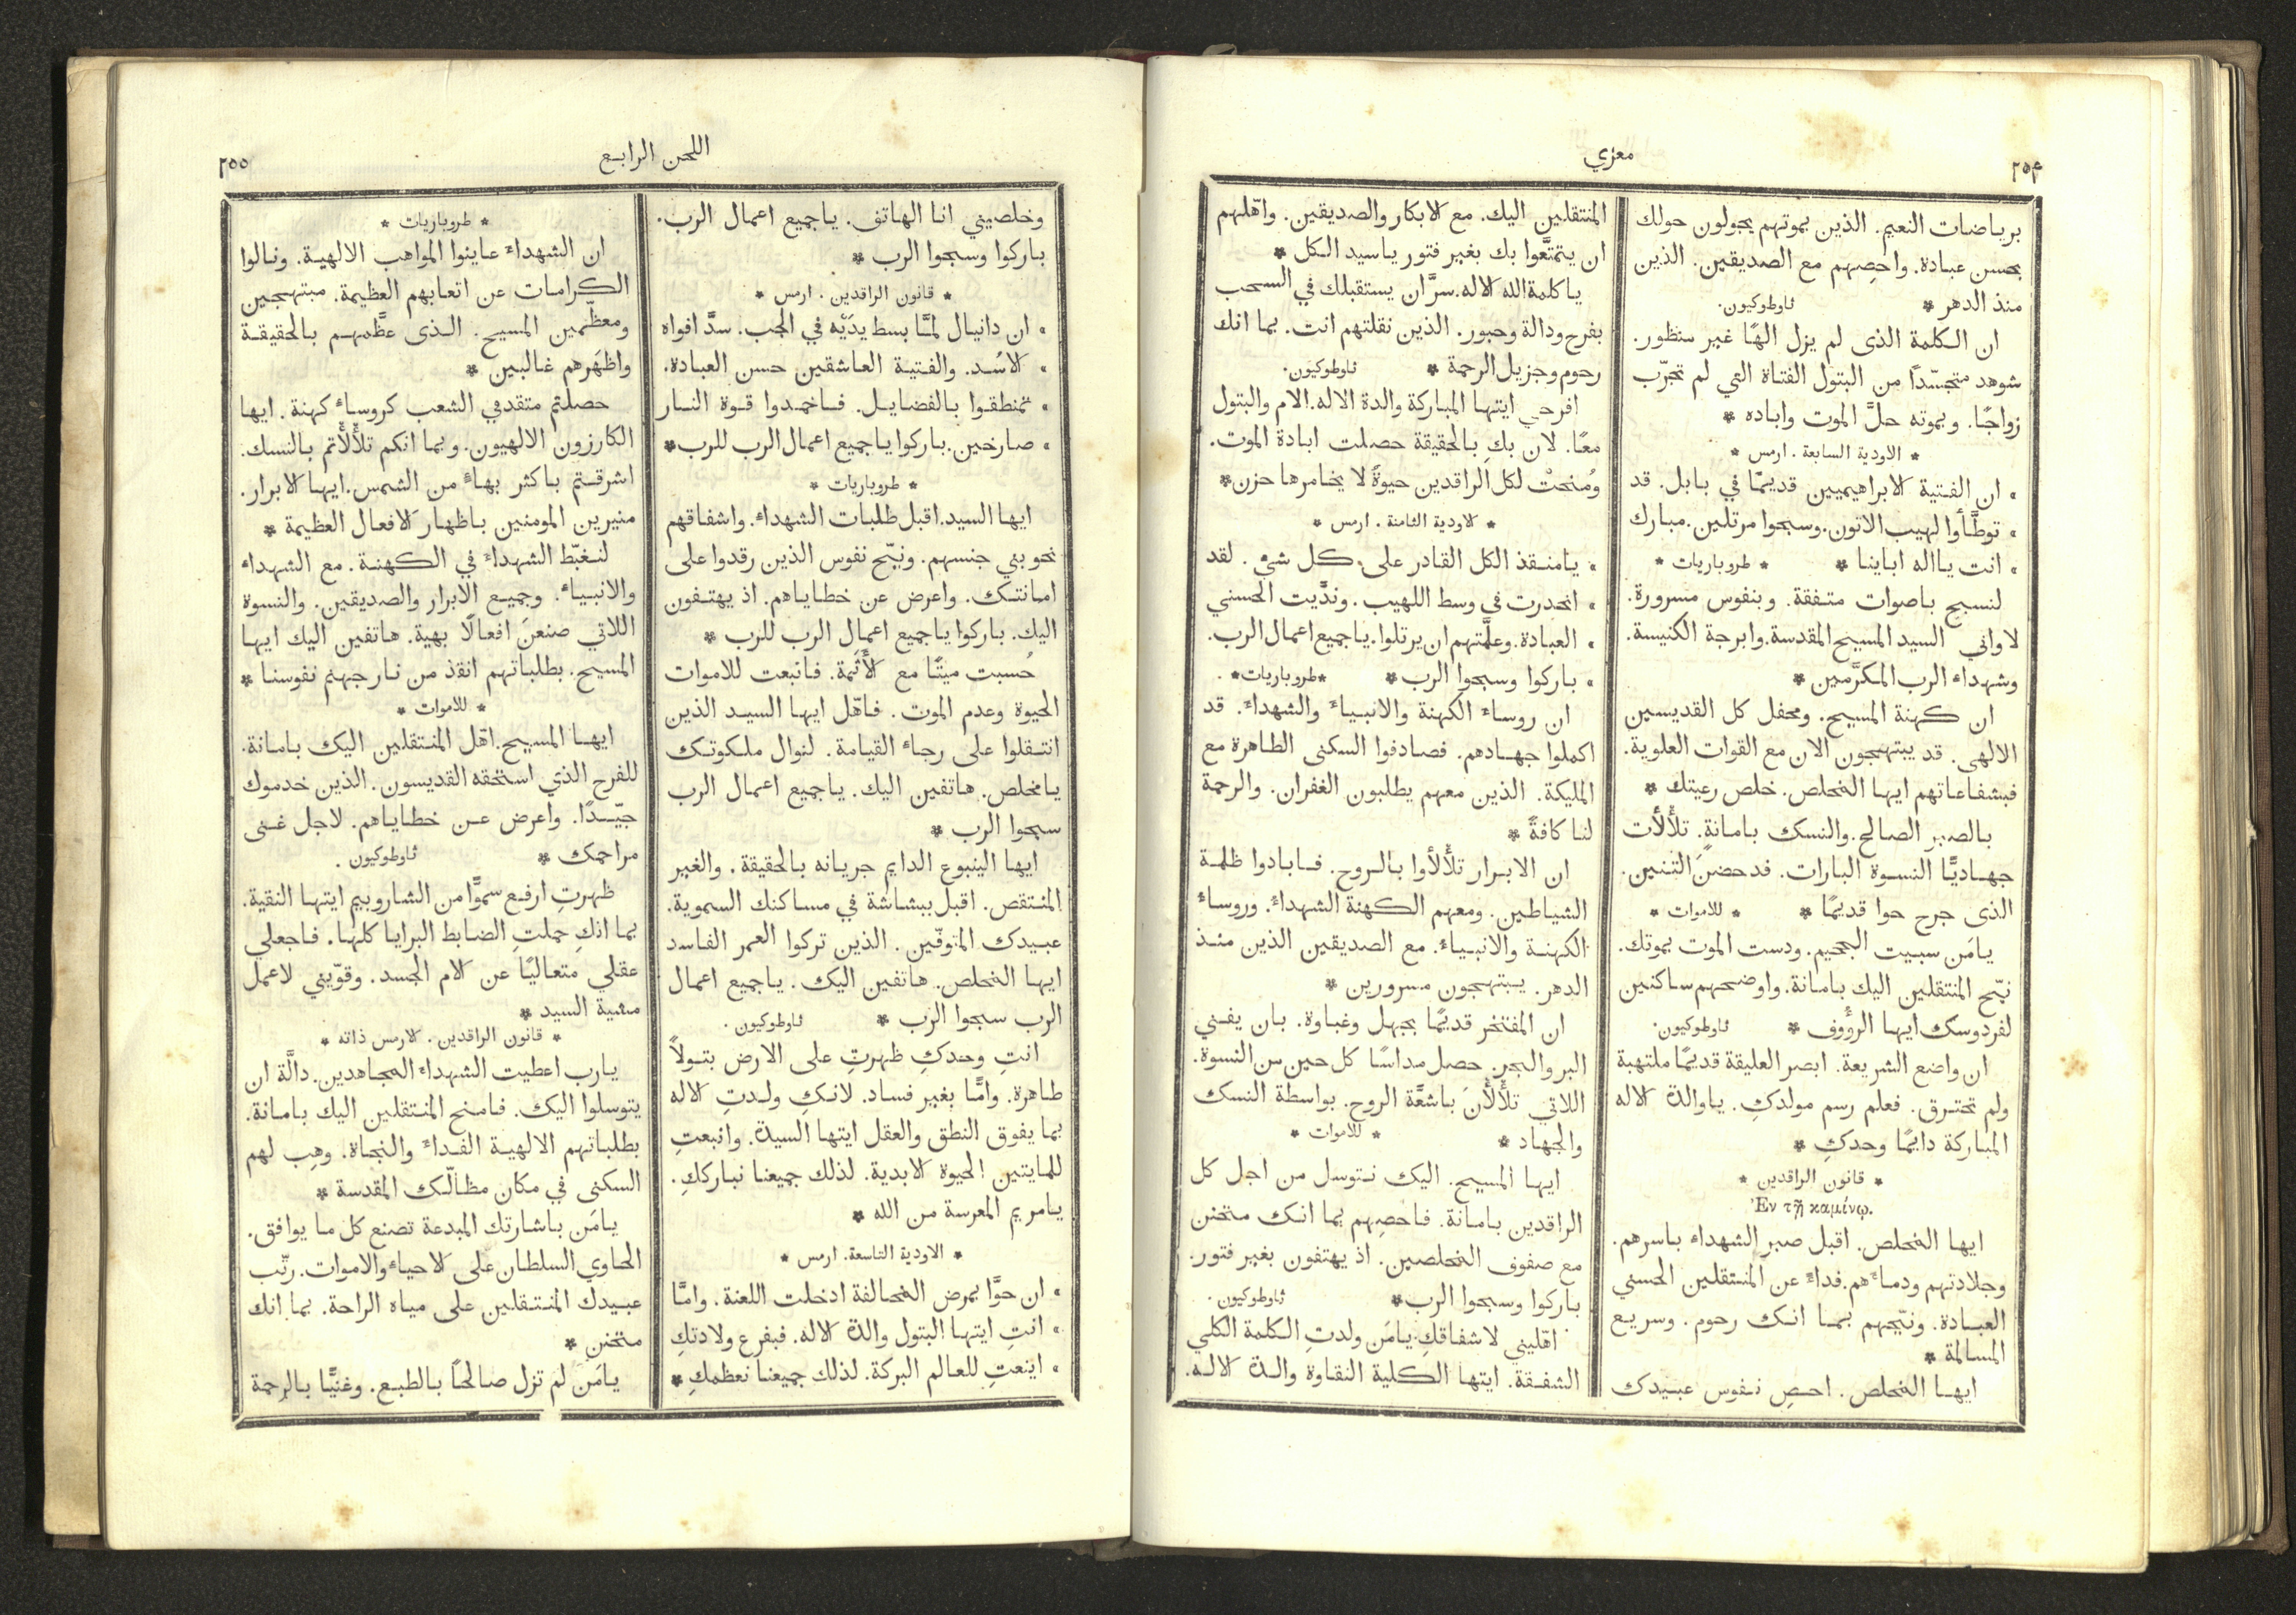 ٢٥٤
معزي
برياضات النعيم. الذين بموتهم يجولون حولك
بحسن عبادة. واحصِهم مع الصديقين. الذين
منذ الدهر * ثاوطوكيون.
ان الكلمة الذى لم يزل الهًا غير منظور.
شوهد متجسّدًا من البتول الفتاة التي لم تجرّب
زواجًا. وبموته حلَّ الموت واباده *
* الاودية السابعة. ارمس *
• ان الفتية الابراهيميين قديمًا في بابل. قد
• توطَّأوا لهيب الاتون. وسبحوا مرتلين. مبارك
• انت يااله اباينا * * طروباريات *
لنسبح باصوات متفقة. وبنفوس مسرورة.
لاواني السيد المسيح المقدسة. وابرجة الكنيسة.
وشهداء الرب المكرَّمين *
ان كهنة المسيح. ومحفل كل القديسين
الالهى. قد يبتهجون الان مع القوات العلوية.
فبشفاعاتهم ايها المخلص. خلص رعيتك *
بالصبر الصالح. والنسك بامانةٍ. تلألأت
جهاديًّا النسوة البارات. فدحضنَ التنين.
الذى جرح حوا قديمًا * * للاموات *
يامَن سبيت الجحيم. ودست الموت بموتك.
نيّح المنتقلين اليك بامانة. واوضحهم ساكنين
لفردوسك ايها الرؤوف * ثاوطوكيون.
ان واضع الشريعة. ابصر العليقة قديمًا ملتهبة
ولم تحترق. فعلم رسم مولدكِ. ياوالدة الاله
المباركة دايمًا وحدكِ *
* قانون الراقدين *
Ἐν τῇ καμίνῳ.
ايها المخلص. اقبل صبر الشهداء باسرهم.
وجلادتهم ودماءهم. فداءً عن المنتقلين الحسني
العبادة. ونيّحهم بما انك رحوم. وسريع
المسالمة *
ايها المخلص. احصِ نفوس عبيدك
المنتقلين اليك. مع الابكار والصديقين. واهّلهم
ان يتمتَّعوا بك بغير فتور ياسيد الكل *
ياكلمة الله الاله. سرَّ ان يستقبلك في السحب
بفرح ودالة وحبور. الذين نقلتهم انت. بما انك
رحوم وجزيل الرحمة * ثاوطوكيون.
افرحي ايتها المباركة والدة الاله. الام والبتول
معًا. لان بكِ بالحقيقة حصلت ابادة الموت.
ومُنحتْ لكل الراقدين حيوةً لا يخامرها حزن*
* الاودية الثامنة. ارمس *
• يامنقذ الكل القادر على كل شئ. لقد
• انحدرت في وسط اللهيب. وندَّيت الحسني
• العبادة. وعلَّمتهم ان يرتلوا. ياجميع اعمال الرب.
• باركوا وسبحوا الرب * *طروباريات*
ان روساء الكهنة والانبياء والشهداء. قد
اكملوا جهادهم. فصادفوا السكنى الطاهرة مع
المليكة. الذين معهم يطلبون الغفران. والرحمة
لنا كافةً *
ان الابرار تلألأوا بالروح. فابادوا ظلمة
الشياطين. ومعهم الكهنة الشهداء. وروساء
الكهنة والانبياء. مع الصديقين الذين منذ
الدهر. يبتهجون مسرورين *
ان المفتخر قديمًا بجهل وغباوة. بان يفني
البر والبحر. حصل مداسًا كل حين من النسوة.
اللاتي تلألأنَ باشعَّة الروح. بواسطة النسك
والجهاد * * للاموات *
ايها المسيح. اليك نتوسل من اجل كل
الراقدين بامانة. فاحصِهم بما انك متحنن
مع صفوف المخلصين. اذ يهتفون بغير فتور.
باركوا وسبحوا الرب* ثاوطوكيون.
اهّليني لاشفاقكِ. يامَن ولدتِ الكلمة الكلي
الشفقة. ايتها الكلية النقاوة والدة الاله.
اللحن الرابع
٢٥٥
وخلصيني انا الهاتف. ياجميع اعمال الرب.
باركوا وسبحوا الرب *
* قانون الراقدين. ارمس *
• ان دانيال لمَّا بسط يدَيْه في الجب. سدَّ افواه
• الاسُد. والفتية العاشقين حسن العبادة.
• تمنطقوا بالفضايل. فاخمدوا قوة النار
• صارخين. باركوا ياجميع اعمال الرب للرب*
* طروباريات *
ايها السيد. اقبل طلبات الشهداء. واشفاقهم
نحو بني جنسهم. ونيّح نفوس الذين رقدوا على
امانتك. واعرض عن خطاياهم. اذ يهتفون
اليك. باركوا ياجميع اعمال الرب للرب *
حُسبت ميتًا مع الأَثَمة. فانبعت للاموات
الحيوة وعدم الموت. فاهّل ايها السيد الذين
انتقلوا على رجاء القيامة. لنوال ملكوتك
يامخلص. هاتفين اليك. ياجميع اعمال الرب
سبحوا الرب *
ايها الينبوع الدايم جريانه بالحقيقة. والغير
المنتقص. اقبل ببشاشة في مساكنك السموية.
عبيدك المتوفّين. الذين تركوا العمر الفاسد
ايها المخلص. هاتفين اليك. ياجميع اعمال
الرب سبحوا الرب * ثاوطوكيون.
انتِ وحدكِ ظهرتِ على الارض بتولاً
طاهرة. وامًّا بغير فساد. لانكِ ولدتِ الاله
بما يفوق النطق والعقل ايتها السيدة. وانبعتِ
للمايتين الحيوة الابدية. لذلك جميعنا نباركك.
يامريم المعرسة من الله *
* الاودية التاسعة. ارمس *
• ان حوَّا بمرض المخالفة ادخلت اللعنة. وامَّا
• انتِ ايتها البتول والدة الاله. فبفرع ولادتكِ
• اينعتِ للعالم البركة. لذلك جميعنا نعظمكِ *
* طروباريات *
ان الشهداء عاينوا المواهب الالهية. ونالوا
الكرامات عن اتعابهم العظيمة. مبتهجين
ومعظّمين المسيح. الذى عظَّمهم بالحقيقة
واظهَرهم غالبين *
حصلتم متقدمي الشعب كروساء كهنة. ايها
الكارزون الالهيون. وبما انكم تلألأتم بالنسك.
اشرقتم باكثر بهاءٍ من الشمس. ايها الابرار.
منيرين المومنين باظهار الافعال العظيمة *
لنغبّط الشهداء في الكهنة. مع الشهداء
والانبياء. وجميع الابرار والصديقين. والنسوة
اللاتي صنعنَ افعالًا بهية. هاتفين اليك ايها
المسيح. بطلباتهم انقذ من نار جهنم نفوسنا *
* للاموات *
ايها المسيح. اهّل المنتقلين اليك بامانة.
للفرح الذي استحقه القديسون. الذين خدموك
جيّدًا. واعرض عن خطاياهم. لاجل غنى
مراحمك * ثاوطوكيون.
ظهرتِ ارفع سموًّا من الشاروبيم ايتها النقية.
بما انكِ حملتِ الضابط البرايا كلها. فاجعلي
عقلي متعاليًا عن الام الجسد. وقوّيني لاعمل
مشية السيد *
* قانون الراقدين. لارمس ذاته *
يارب اعطيت الشهداء المجاهدين. دالَّة ان
يتوسلوا اليك. فامنح المنتقلين اليك بامانة.
بطلباتهم الالهية الفداءَ والنجاة. وهِب لهم
السكنى في مكان مظالّك المقدسة *
يامَن باشارتك المبدعة تصنع كل ما يوافق.
الحاوي السلطان على الاحياء والاموات. رتّب
عبيدك المنتقلين على مياه الراحة. بما انك
متحنن *
يامَن لم تزل صالحًا بالطبع. وغنيًّا بالرحمة